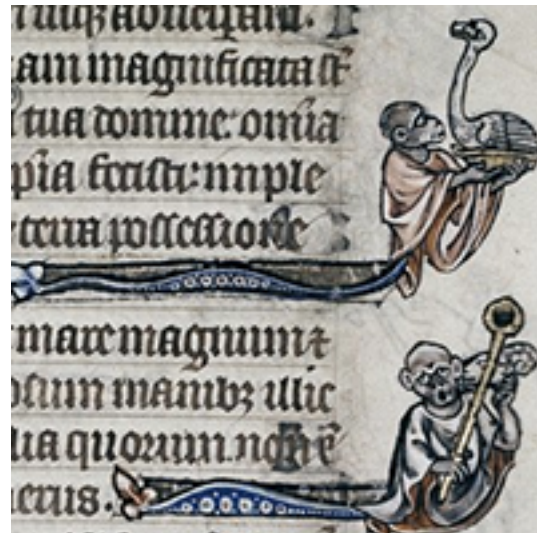 am magnificata st
tua domine: omnia
pia fecisti: imple
terra possessione
mare magnum &
osum manibz illic
ia quorum non ē
erus.